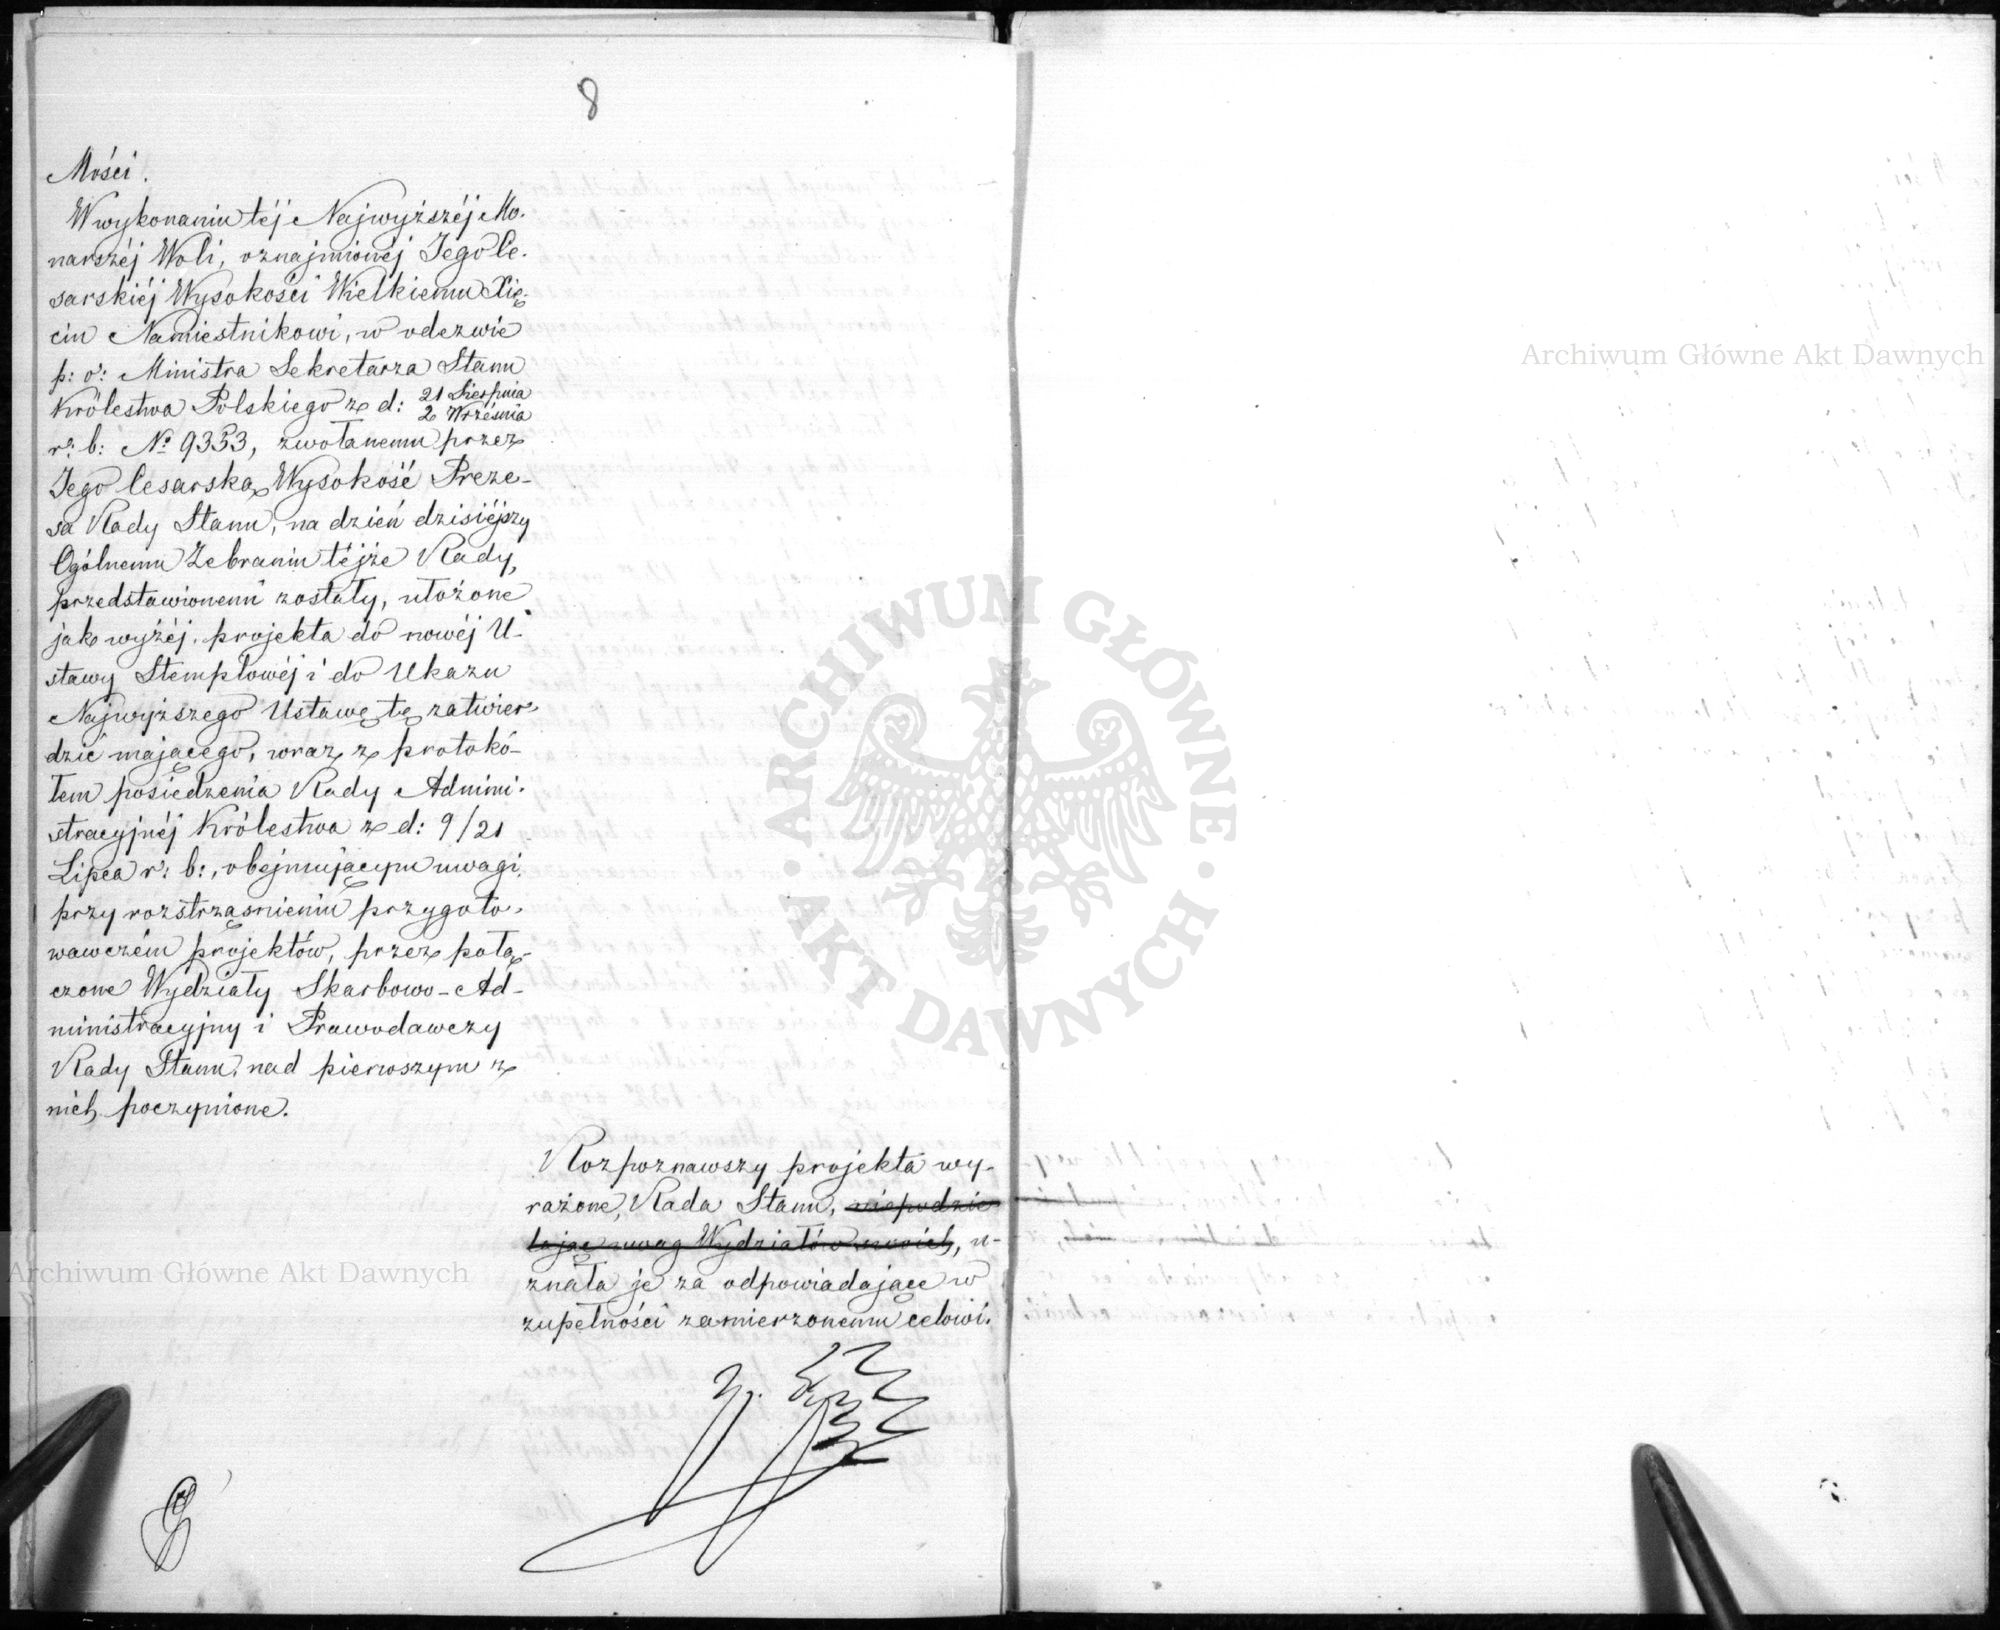 8
Mości.
W wykonaniu téj Najwyższéj Mo-
narszéj Woli, oznajmionéj Jego Ce-
sarskiéj Wysokości Wielkiemu Xię-
ciu Namiestnikowi, w odezwie
p: o: Ministra Sekretarza Stanu
Królestwa Polskiego z d: 21 Sierpnia
2 Września
r: b: No 9353, zwołanemu przez
Jego Cesarską Wysokość Preze-
sa Rady Stanu, na dzień dzisiéjszy
Ogólnemu Zebraniu téjże Rady,
przedstawionemi zostały, ułożone
jak wyżéj projekta do nowéj U-
stawy Stemplowéj i do Ukazu
Najwyższego Ustawę tę zatwier-
dzić mającego, wraz z protokó-
łem posiedzenia Rady Admini-
stracyjnéj Królestwa z d: 9/21
Lipca r: b:, obejmującym uwagi,
przy rozstrząśnieniu przygoto-
wawczém projektów, przez połą-
czone Wydziały Skarbowo-Ad-
ministracyjny i Prawodawczy
Rady Stanu, nad pierwszym z
nich poczynione.
Rozpoznawszy projekta wy-
rażone, Rada Stanu, niepodzie
lając uwag Wydziałów swoich, u-
znała je za odpowiadające w
zupełności zamierzonemu celowi.
Archiwum Główne Akt Dawnych
Archiwum Główne Akt Dawnych
ARCHIWUM GŁÓWNE
AKT DAWNYCH